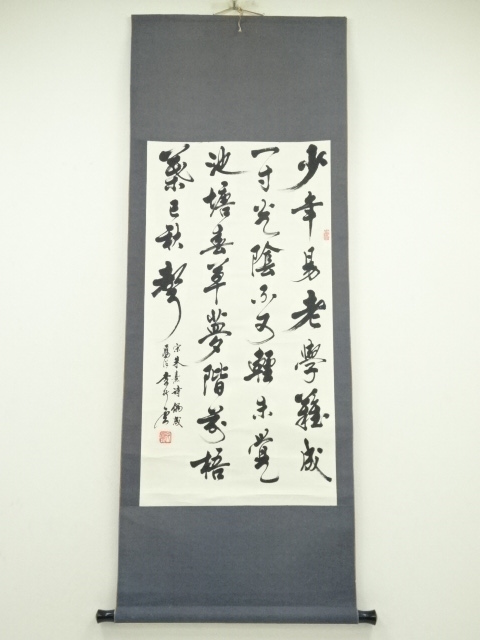 少年易老學難成
一寸光陰不可輕未覺
池塘春草夢階前梧
葉已秋聲
宋朱熹詩偶成